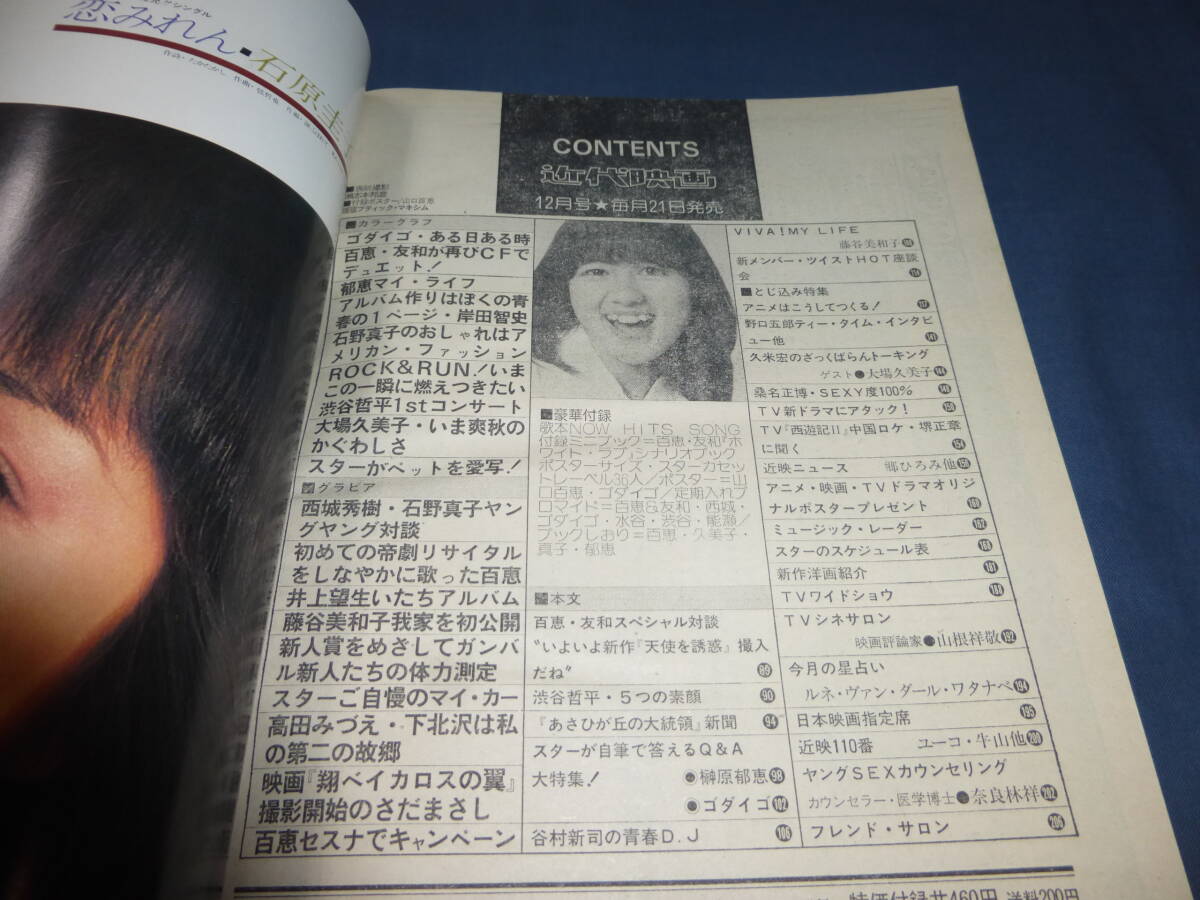 恋みれん・石原圭
CONTENTS
近代映画
12月号★毎月21日発売
■カラーグラフ
ゴダイゴ・ある日ある時
百恵・友和が再びCFで
デュエット！
郁恵マイ・ライフ
アルバム作りはぼくの青
春の1ページ・岸田智史
石野真子のおしゃれはア
メリカン・ファッション
ROCK&RUN！いま
この一瞬に燃えつきたい
渋谷哲平1stコンサート
大場久美子・いま爽秋の
かぐわしさ
スターがペットを愛写！
グラビア
西城秀樹・石野真子ヤン
グヤング対談
初めての帝劇リサイタル
をしなやかに歌った百恵
井上望生いたちアルバム
藤谷美和子我家を初公開
新人賞をめざしてガンバ
ル新人たちの体力測定
スターご自慢のマイ・カー
高田みづえ・下北沢は私
の第二の故郷
映画『翔べイカロスの翼』
撮影開始のさだまさし
百恵セスナでキャンペーン
■豪華付録
歌本NOW HITS SONG
付録ミニブック＝百恵・友和『ホ
ワイト・ラブ』シナリオブック
ポスターサイズ・スターカセッ
トレーベル36人／ポスター＝山
口百恵・ゴダイゴ／定期入れブ
ロマイド＝百恵&友和・西城・
ゴダイゴ・水谷・渋谷・能瀬／
ブックしおり＝百恵・久美子・
真子・郁恵
本文
百恵・友和スペシャル対談
“いよいよ新作『天使を誘惑』撮入
だね” 89
渋谷哲平・5つの素顔 90
『あさひが丘の大統領』新聞 94
スターが自筆で答えるQ&A
大特集！ ●榊原郁恵 98
●ゴダイゴ 102
谷村新司の青春D.J 106
VIVA！MY LIFE
藤谷美和子
新メンバー・ツイストHOT座談
会
■とじ込み特集
アニメはこうしてつくる！ 117
野口五郎ティー・タイム・インタビ
ュー他 141
久米宏のざっくばらんトーキング
ゲスト●大場久美子 144
桑名正博・SEXY度100%
TV新ドラマにアタック！ 150
TV『西遊記II』中国ロケ・堺正章
に聞く 154
近映ニュース 郷ひろみ他
アニメ・映画・TVドラマオリジ
ナルポスタープレゼント 160
ミュージック・レーダー 162
スターのスケジュール表
新作洋画紹介 181
TVワイドショウ 184
TVシネサロン
映画評論家●山根祥敬 192
今月の星占い
ルネ・ヴァン・ダール・ワタナベ 194
日本映画指定席 195
近映110番 ユーコ・牛山他 200
ヤングSEXカウンセリング
カウンセラー・医学博士●奈良林祥 202
フレンド・サロン 206
特価付録共460円 送料200円